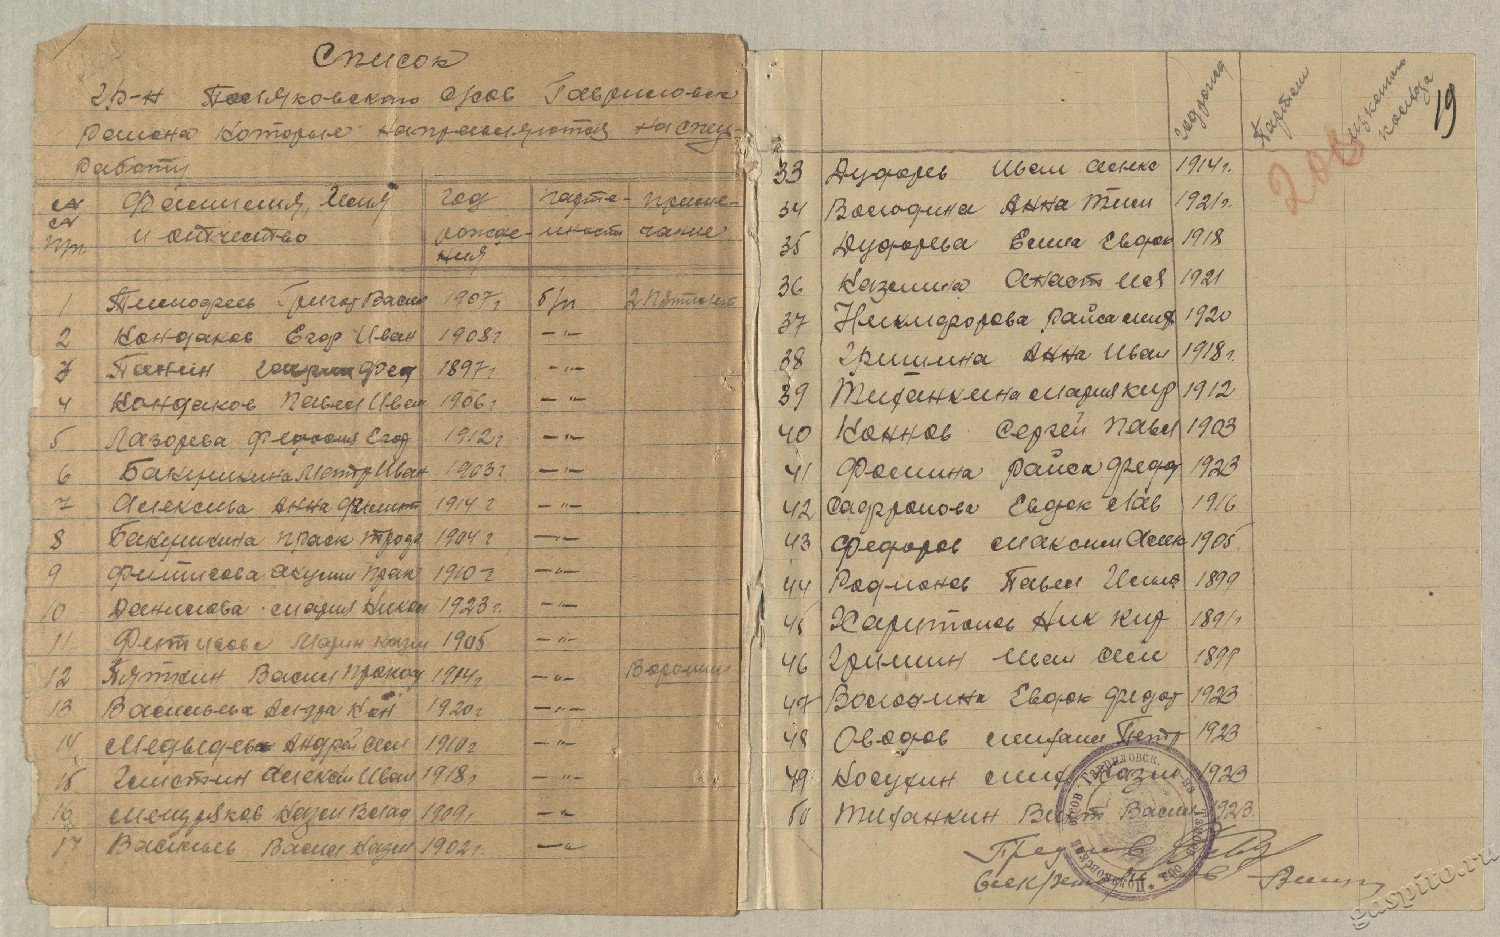 Список
гр-н Посляковского с/сов Гавриловск
района которые направляются на спец-
работу
Фамилия, Имя и отчество год рождения партейность примечание
1 Тимофеев Григор Васил 1907 г б/п
2 Кондаков Егор Иван 1908 г —"—
3 Панин Фед 1897 г —"—
4 Кондаков Павел Иван 1906 г —"—
5 Лазорева Федосия Егор 1912 г —"—
6 Бакушкина Петр Иван 1903 г —"—
7 Алексева Анна Филип 1914 г —"—
8 Бакушкина Праск Троф 1904 г —"—
9 Фитисова Акулин Прок 1910 г —"—
10 Данилова Мария Никол 1923 г. —"—
11 Фетисова Мария Казм 1905 —"—
12 Пяткин Васил Прокоф 1914 г —"—
13 Васильева Алдра Кон 1920 г —"—
14 Медведева Андрей Сем 1910 г —"—
15 Алексей Иван 1918 г —"—
16 Мещуряков Казьм Влад 1909 г. —"—
17 Васильев Васил Казм 1902 г. —"—
год рожд Партейн
19
200
33 Дуфорев Иван Алекс 1914 г.
34 Володина Анна Тим 1921 г.
35 Дуфорева Елена Евдок 1918
36 Казьмина Анаст Иля 1921
37 Никифорова Раиса Миф 1920
38 Гришина Анна Иван 1918 г.
39 Тиханкина Мария Кир 1912
40 Коннов Сергей Павл 1903
41 Фомина Раиса Федот 1923
42 Сафронова Евдок Лав 1916
43 Федоров Максим Алек 1905
44 Родионов Павел Иль 1899
45 Харитонов Ник Кир 1891 г
46 Гришин Иван Сем 1899
47 Володина Евдок Федот 1923
48 Оводов Михаил Петр 1923
49 Косухин Мих Казм 1923
50 Тиханкин Викт Васил 1923.
Пред с/с
Секретарь с/с
Гавриловск. р-на
gaspito.ru